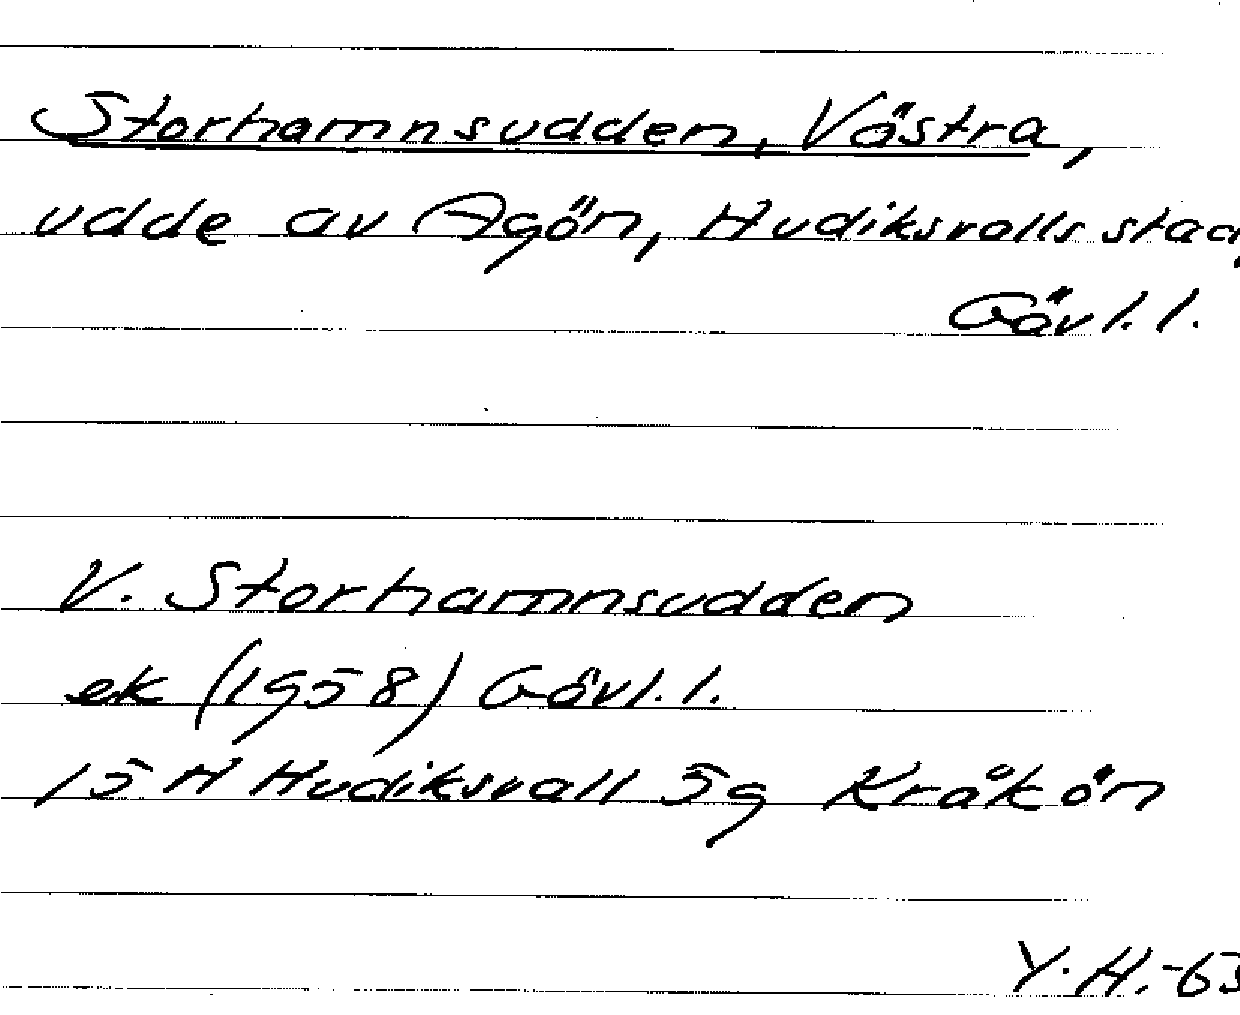 Storhamnsudden, Västra,
udde av Agön, Hudiksvalls stad,
Gävl. l.
V. Storhamnsudden
ek (1958) Gävl. l.
15 H Hudiksvall 5g Kråkön
Y. H. -63